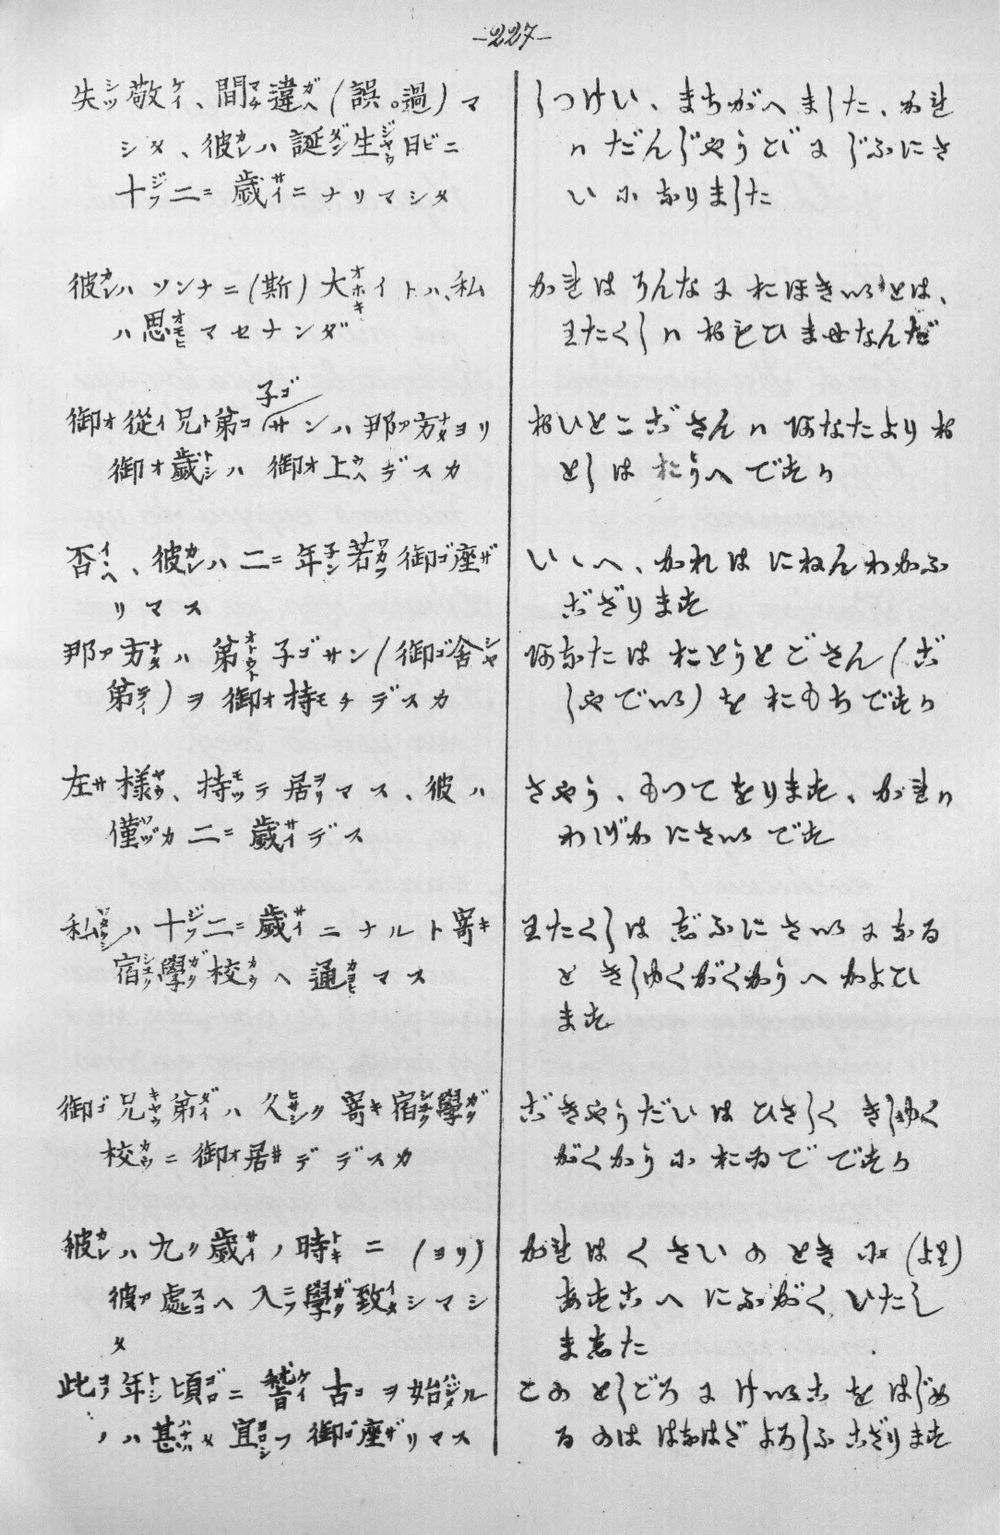 -227-
失敬、間違(誤。過)マ
シタ、彼ハ誕生日ニ
十二歳ニナリマシタ
彼ハソンナニ(斯)大イトハ、私
ハ思マセナンダ
子ゴ
御従兄弟サンハ那方ヨリ
御歳ハ御上デスカ
否、彼ハ二年若御座
リマス
那方ハ弟子サン(御舎
弟)ヲ御持チデスカ
左様、持テ居マス、彼ハ
僅カ二歳デス
私ハ十二歳ニナルト寄
宿學校ヘ通マス
御兄弟ハ久ク寄宿學
校ニ御居デデスカ
彼ハ九歳ノ時ニ(ヨリ)
彼處ヘ入學致シマシ
タ
此年頃ニ稽古ヲ始ル
ノハ甚タ宜フ御座リマス
しつけい、まちがへました、かれ
ハだんじやうびにじふにさ
いになりました
かれはそんなにおほきいとは、
わたくしハおもひませなんだ
おいとこごさんハあなたよりお
としはおうへですか
いゝへ、かれはにねんわかふ
ござります
あなたはおとうとごさん(ご
しやてい)をおもちですか
さやう、もつてをります、かれハ
わづかにさいです
わたくしはじふにさいになる
ときしゆくがくかうへかよひ
ます
ごきやうだいはひさしくきしゆく
がくかうにおゐでですか
かれはくさいのときに(より)
あすこへにふがくいたし
ました
このとしごろにけいこをはじめ
るのははなはだよろしふござります